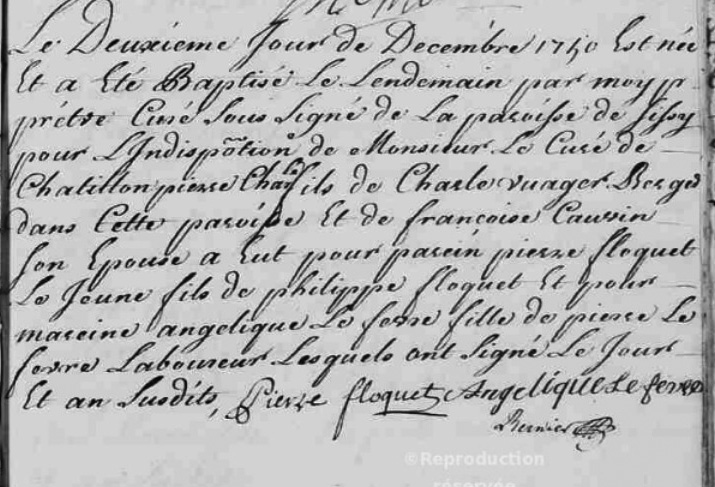 Le Deuxieme Jour de Decembre 1740 Est née
Et a Eté Baptisé Le Lendemain par moy p
prétre Curé Sous Signé de La paroisse de Sissy
pour L'Indispõtion de Monsieur Le Curé de
Chatillon pierre Charle fils de Charle vuager Berger
dans Cette paroisse Et de francoise Caussin
Son Epouse a Eut pour parein pierre floquet
Le Jeune fils de philippe floquet Et pour
mareine angelique Le fevre fille de pierre Le
fevre Laboureur Lesquels ont Signé Le Jour
Et an Susdits, Pierre floquet Angelique Le fevre
Bernier
©Reproduction
réservée